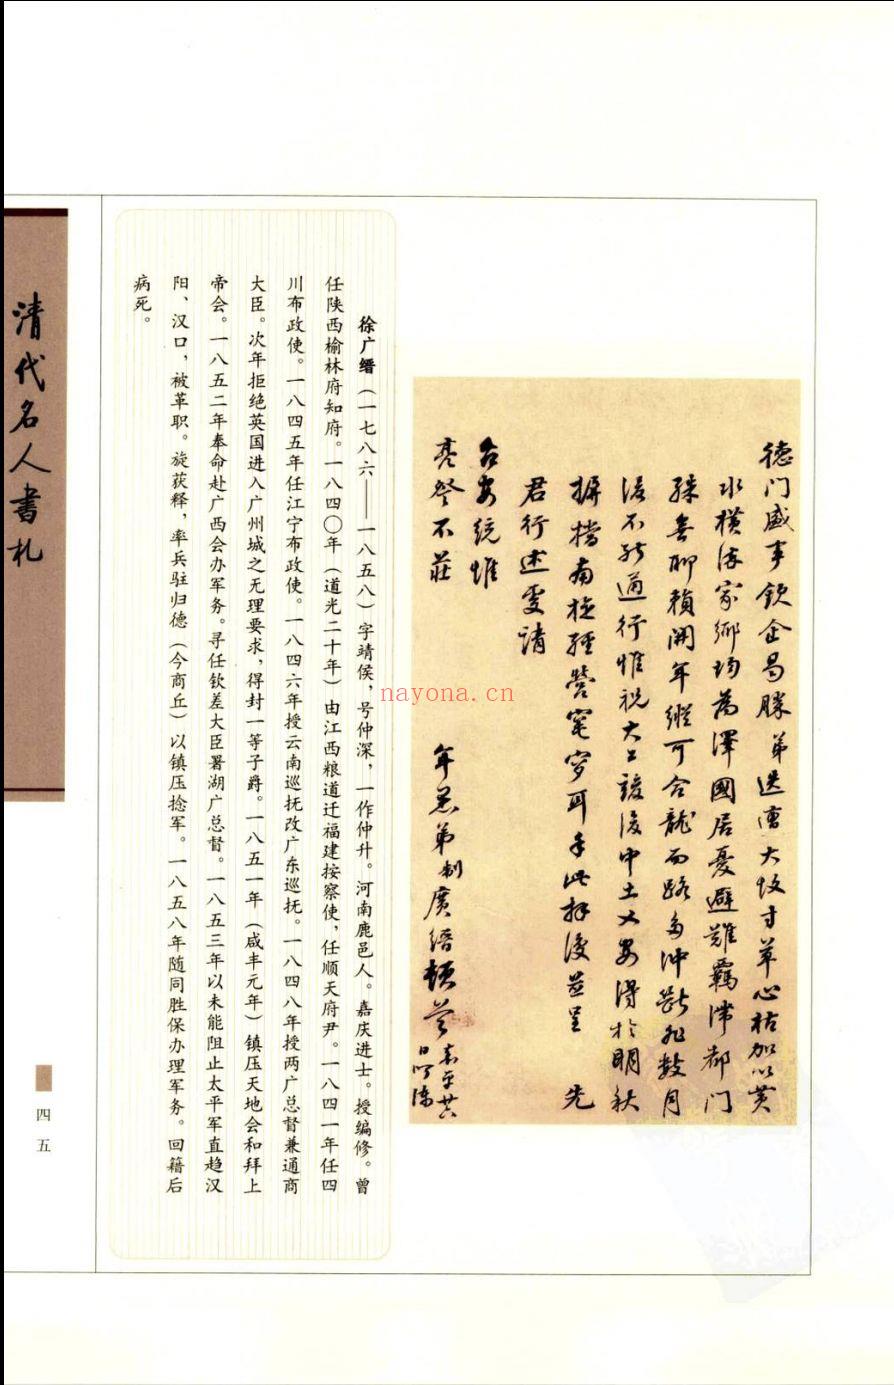 德门盛事钦企曷胜弟迭遭大故寸草心枯加以黄
水横流家乡均为澤國居憂避難羈滞都门
殊無聊賴開年縱可合龍而路多沖斷非数月
後不能通行惟祝大工竣後中土乂安得於明秋
摒擋南旋經營窀穸耳手此拜復並呈 先
君行述雯請
台安统惟
亮詧不莊
年愚弟制廣縉頓首
徐广缙（一七八六——一八五八）字靖侯，号仲深，一作仲升。河南鹿邑人。嘉庆进士。授编修。曾
任陕西榆林府知府。一八四〇年（道光二十年）由江西粮道迁福建按察使，任顺天府尹。一八四一年任四
川布政使。一八四五年任江宁布政使。一八四六年授云南巡抚改广东巡抚。一八四八年授两广总督兼通商
大臣。次年拒绝英国进入广州城之无理要求，得封一等子爵。一八五一年（咸丰元年）镇压天地会和拜上
帝会。一八五二年奉命赴广西会办军务。寻任钦差大臣署湖广总督。一八五三年以未能阻止太平军直趋汉
阳、汉口，被革职。旋获释，率兵驻归德（今商丘）以镇压捻军。一八五八年随同胜保办理军务。回籍后
病死。
清代名人書札
四五
nayona.cn